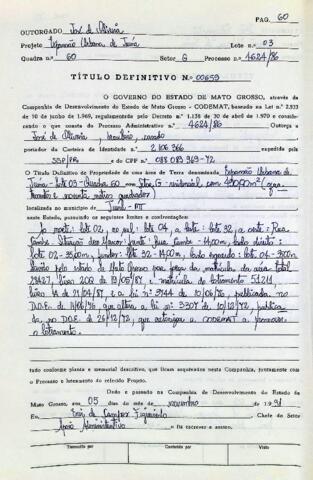 PAG. 60
OUTORGADO José de Oliveira
Projeto Expansão Urbana de Juína Lote n.o 03
Quadra n.o 60 Setor G Processo n.o 4624/86
TÍTULO DEFINITIVO N.o 00659
O GOVERNO DO ESTADO DE MATO GROSSO, através da
Companhia de Desenvolvimento do Estado de Mato Grosso - CODEMAT, baseado na Lei n.o 2.933
de 10 de junho de 1969, regulamentada pelo Decreto n.o 1.138 de 30 de abril de 1970 e considerando
o que consta do Processo Administrativo n.o 4624/86 Outorga a
José de Oliveira, brasileiro, casado
portador da Carteira de Identidade n.o 2.106.366 expedida pela
SSP/PR e do CPF n.o 088.083.369-72
O Título Definitivo de Propriedade de uma área de Terra denominada Expansão Urbana de
Juína - Lote 03 - Quadra 60 com Setor G - com 490,00m²
e noventa metros quadrados)
localizada no município de Juína - MT
neste Estado, possuindo os seguintes limites e confrontações:
Ao norte: lote 02, ao sul: lote 04, a leste: lote 32, a oeste: Rua
Frente: Rua - 14,00m, lado direito:
lote 02 - 35,00m, fundos: lote 32 - 14,00m, lado esquerdo: lote 04 - 35,00m
pelo estado de Mato Grosso por força da matrícula da área total
livro 2 de 19/05/87 e matrícula do loteamento
de 21/04/87 e a lei nº 3744 de 10/06/76, publicada no
D.O.E. de 76, que altera a lei nº 3307 de 10/12/72, publica
da no D.O.E. de 26/12/72, que autorizou a CODEMAT a promover
o loteamento.
tudo conforme planta e memorial descritivo, que ficam arquivados nesta Companhia, juntamente com
o Processo e loteamento do referido Projeto.
Dado e passado na Companhia de Desenvolvimento do Estado de
Mato Grosso, aos 05 dias do mês de novembro de 1991
Eu, de Campos Figueiredo Chefe do Setor
Apoio Administrativo o fiz escrever e assino.
Transcrito por
Conferido por
Visto